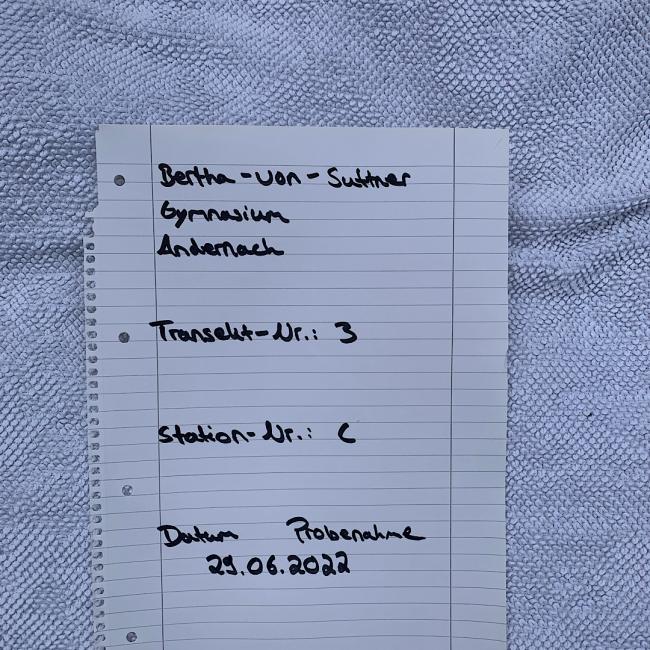 Bertha-von-Suttner
Gymnasium
Andernach
Transekt-Nr.: 3
Station-Nr.: C
Datum Probenahme
29.06.2022